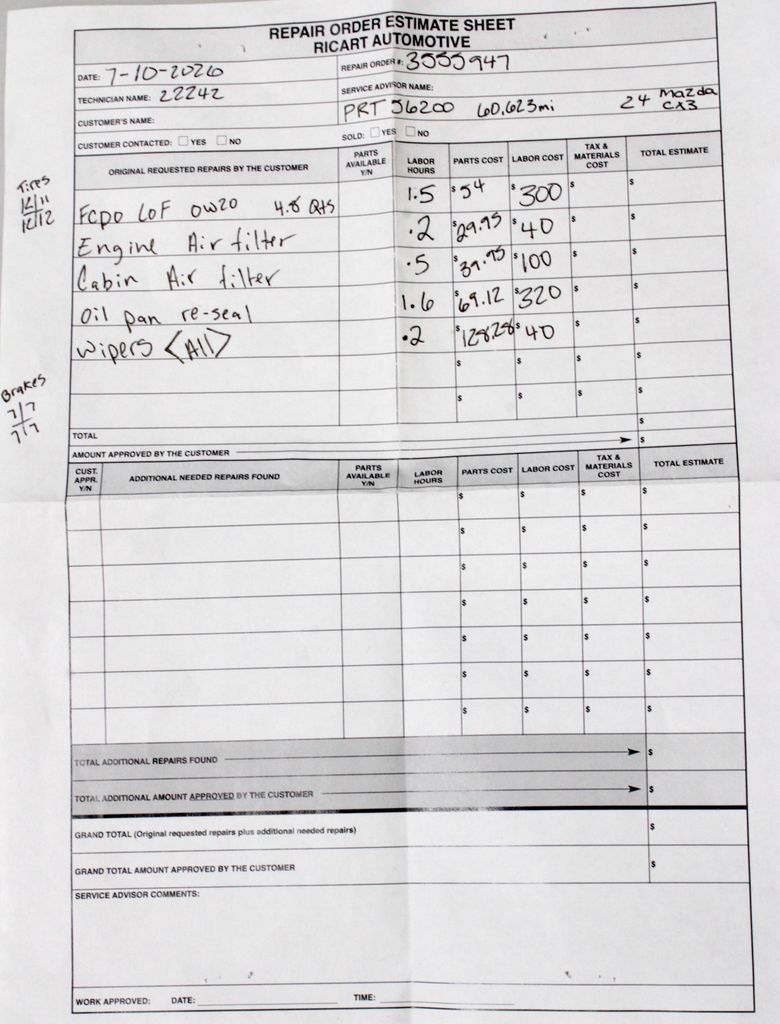 REPAIR ORDER ESTIMATE SHEET
RICART AUTOMOTIVE
DATE: 7-10-2026 REPAIR ORDER #: 3555947
TECHNICIAN NAME: 22242 SERVICE ADVISOR NAME:
CUSTOMER'S NAME: PRT 56200 60,623mi 24 Mazda CX3
CUSTOMER CONTACTED: YES NO SOLD: YES NO
ORIGINAL REQUESTED REPAIRS BY THE CUSTOMER PARTS AVAILABLE Y/N LABOR HOURS PARTS COST LABOR COST TAX & MATERIALS COST TOTAL ESTIMATE
Tires
12/11
12/12
Fcpo LOF 0W20 4.8 Qts 1.5 $54 $300 $ $
Engine Air filter .2 $29.95 $40 $ $
Cabin Air filter .5 $39.95 $100 $ $
Oil pan re-seal 1.6 $69.12 $320 $ $
Wipers <All> .2 $128.28 $40 $ $
$ $ $ $
$ $ $ $
Brakes
7/7
7/7
TOTAL $
AMOUNT APPROVED BY THE CUSTOMER $
CUST. APPR. Y/N ADDITIONAL NEEDED REPAIRS FOUND PARTS AVAILABLE Y/N LABOR HOURS PARTS COST LABOR COST TAX & MATERIALS COST TOTAL ESTIMATE
$ $ $ $
$ $ $ $
$ $ $ $
$ $ $ $
$ $ $ $
$ $ $ $
$ $ $ $
TOTAL ADDITIONAL REPAIRS FOUND $
TOTAL ADDITIONAL AMOUNT APPROVED BY THE CUSTOMER $
GRAND TOTAL (Original requested repairs plus additional needed repairs) $
GRAND TOTAL AMOUNT APPROVED BY THE CUSTOMER $
SERVICE ADVISOR COMMENTS:
WORK APPROVED: DATE: TIME: